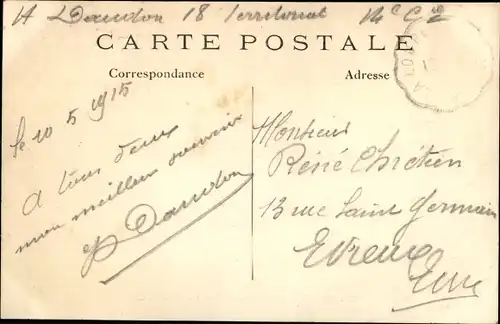 A Daudon 18 Territorial 14e Cie
CARTE POSTALE
Correspondance
Adresse
le 10 5 1915
A tous deux
mon meilleur souvenir
Daudon
Monsieur
René Chrétien
13 rue Saint Germain
Evreux
Eure